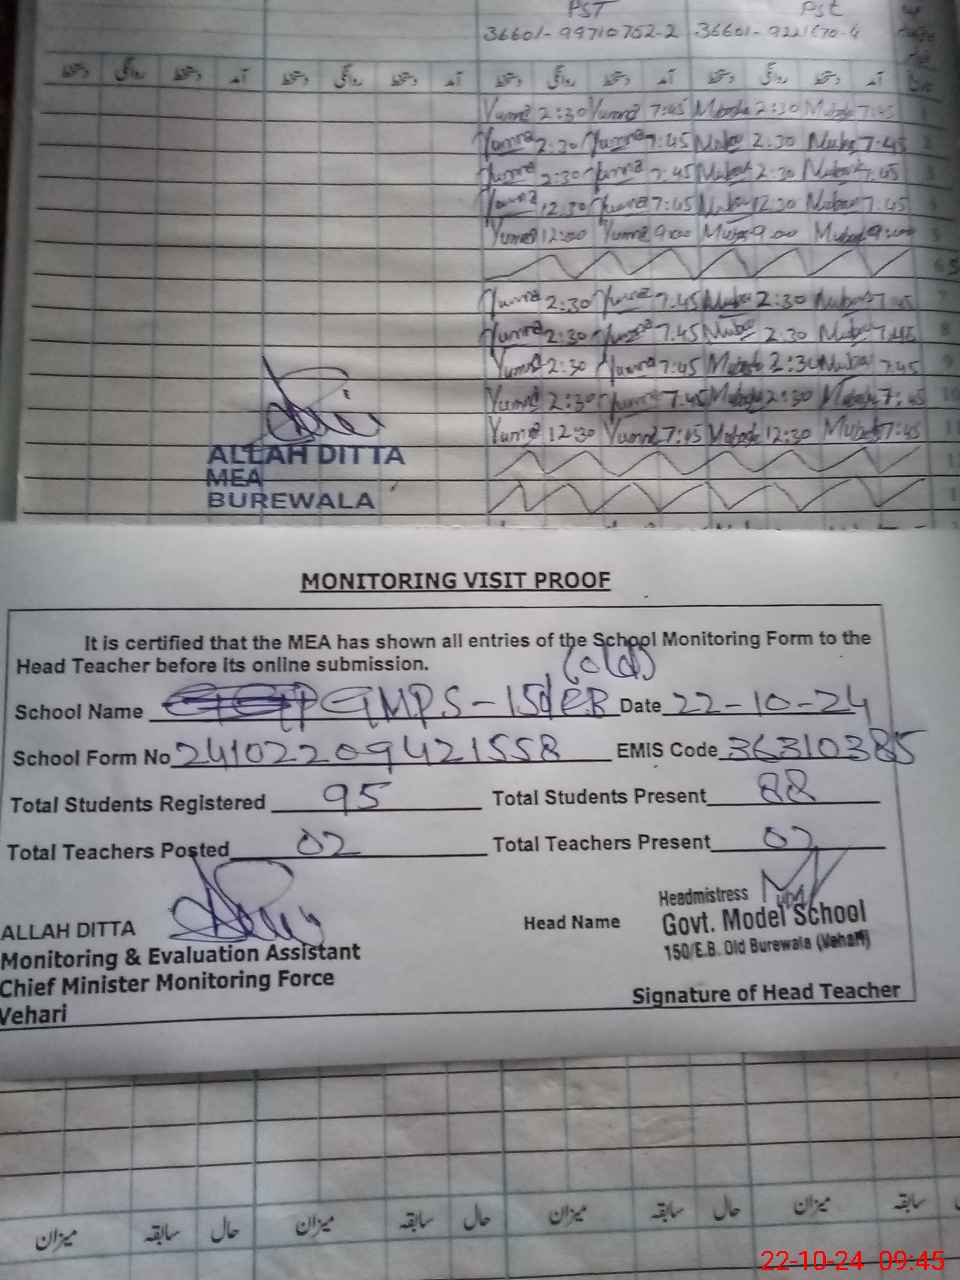 PST PST
36601-99710752-2 36601-9221670-4
دستخط روانگی دستخط آمد دستخط روانگی دستخط آمد دستخط روانگی دستخط آمد دستخط روانگی دستخط آمد
Yumna 2:30 Yumna 7:45 2:30 7:45
Yumna 2:30 Yumna 7:45 2:30 7:45
Yumna 2:30 Yumna 7:45 2:30 7:45
Yumna 12:30 Yumna 7:45 12:30 7:45
Yumna 12:00 Yumna 9:00 9:00 9:00
Yumna 2:30 Yumna 7:45 2:30 7:45
Yumna 2:30 Yumna 7:45 2:30 7:45
Yumna 2:30 Yumna 7:45 2:30 7:45
Yumna 2:30 Yumna 7:45 2:30 7:45
Yumna 12:30 Yumna 7:45 12:30 7:45
ALLAH DITTA
MEA
BUREWALA
MONITORING VISIT PROOF
It is certified that the MEA has shown all entries of the School Monitoring Form to the
Head Teacher before its online submission.
(old)
School Name GMPS-150/EB Date 22-10-24
School Form No 24102209421558 EMIS Code 36310385
Total Students Registered 95 Total Students Present 88
Total Teachers Posted 02 Total Teachers Present 02
Headmistress
ALLAH DITTA Head Name Govt. Model School
Monitoring & Evaluation Assistant 150/E.B. Old Burewala (Vehari)
Chief Minister Monitoring Force
Vehari Signature of Head Teacher
میزان سابقہ حال میزان سابقہ حال میزان سابقہ حال میزان سابقہ
22-10-24 09:45